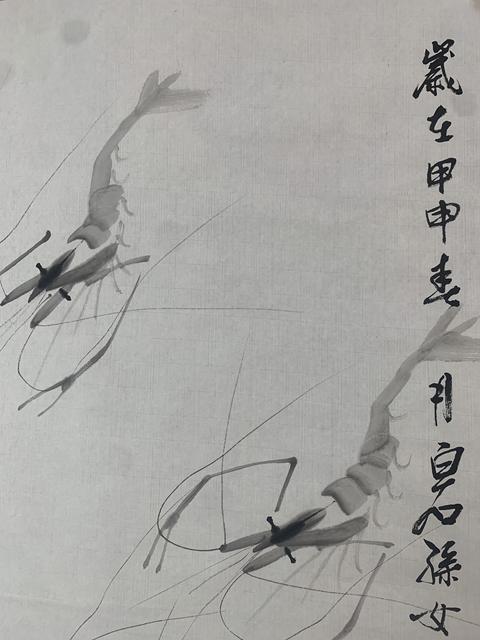 歲在甲申春月白石孫女